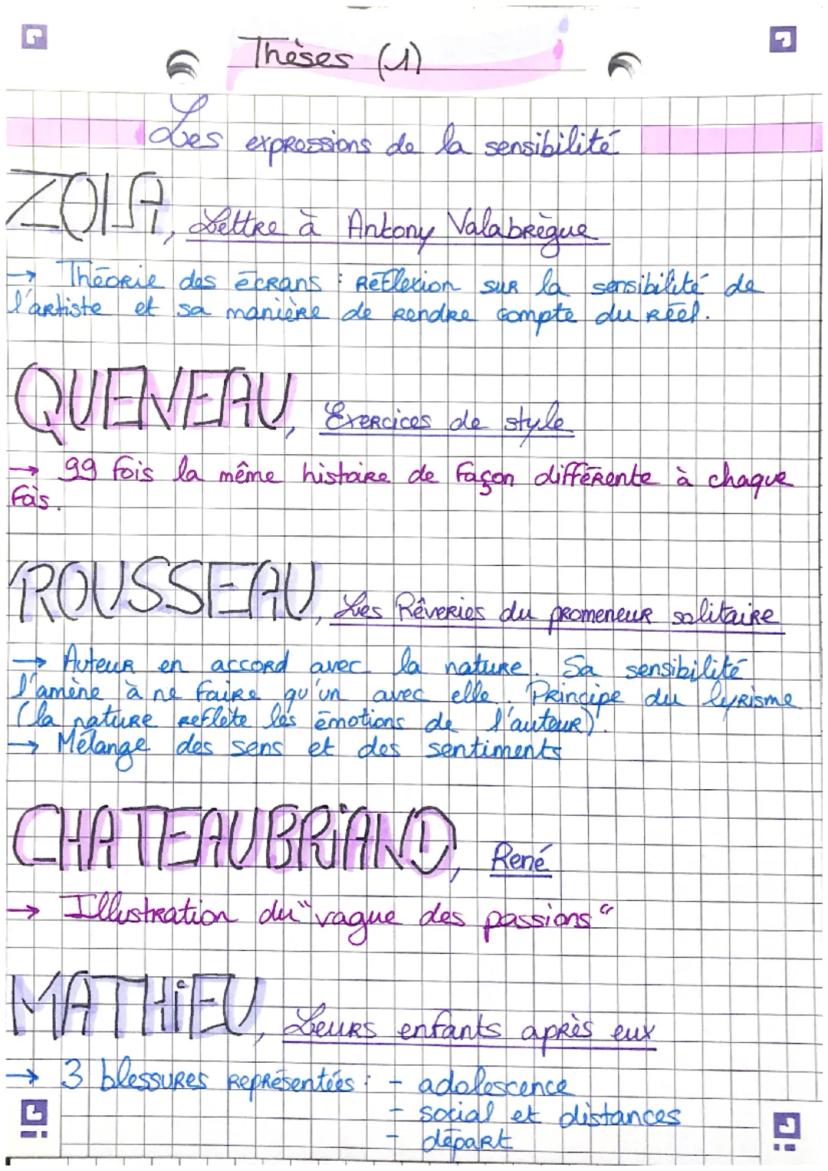 Thèses (1)
Les expressions de la sensibilité
ZOLA, Lettre à Antony Valabrègue
→ Théorie des écrans : réflexion sur la sensibilité de
l'artiste et sa manière de rendre compte du réel.
QUENEAU, Exercices de style
→ 99 fois la même histoire de façon différente à chaque
fois.
ROUSSEAU, Les Rêveries du promeneur solitaire
→ Auteur en accord avec la nature. Sa sensibilité
l'amène à ne faire qu'un avec elle. Principe du lyrisme
(la nature reflète les émotions de l'auteur).
→ Mélange des sens et des sentiments
CHATEAUBRIAND, René
→ Illustration du "vague des passions"
MATHIEU, Leurs enfants après eux
→ 3 blessures représentées : - adolescence
- social et distances
- départ